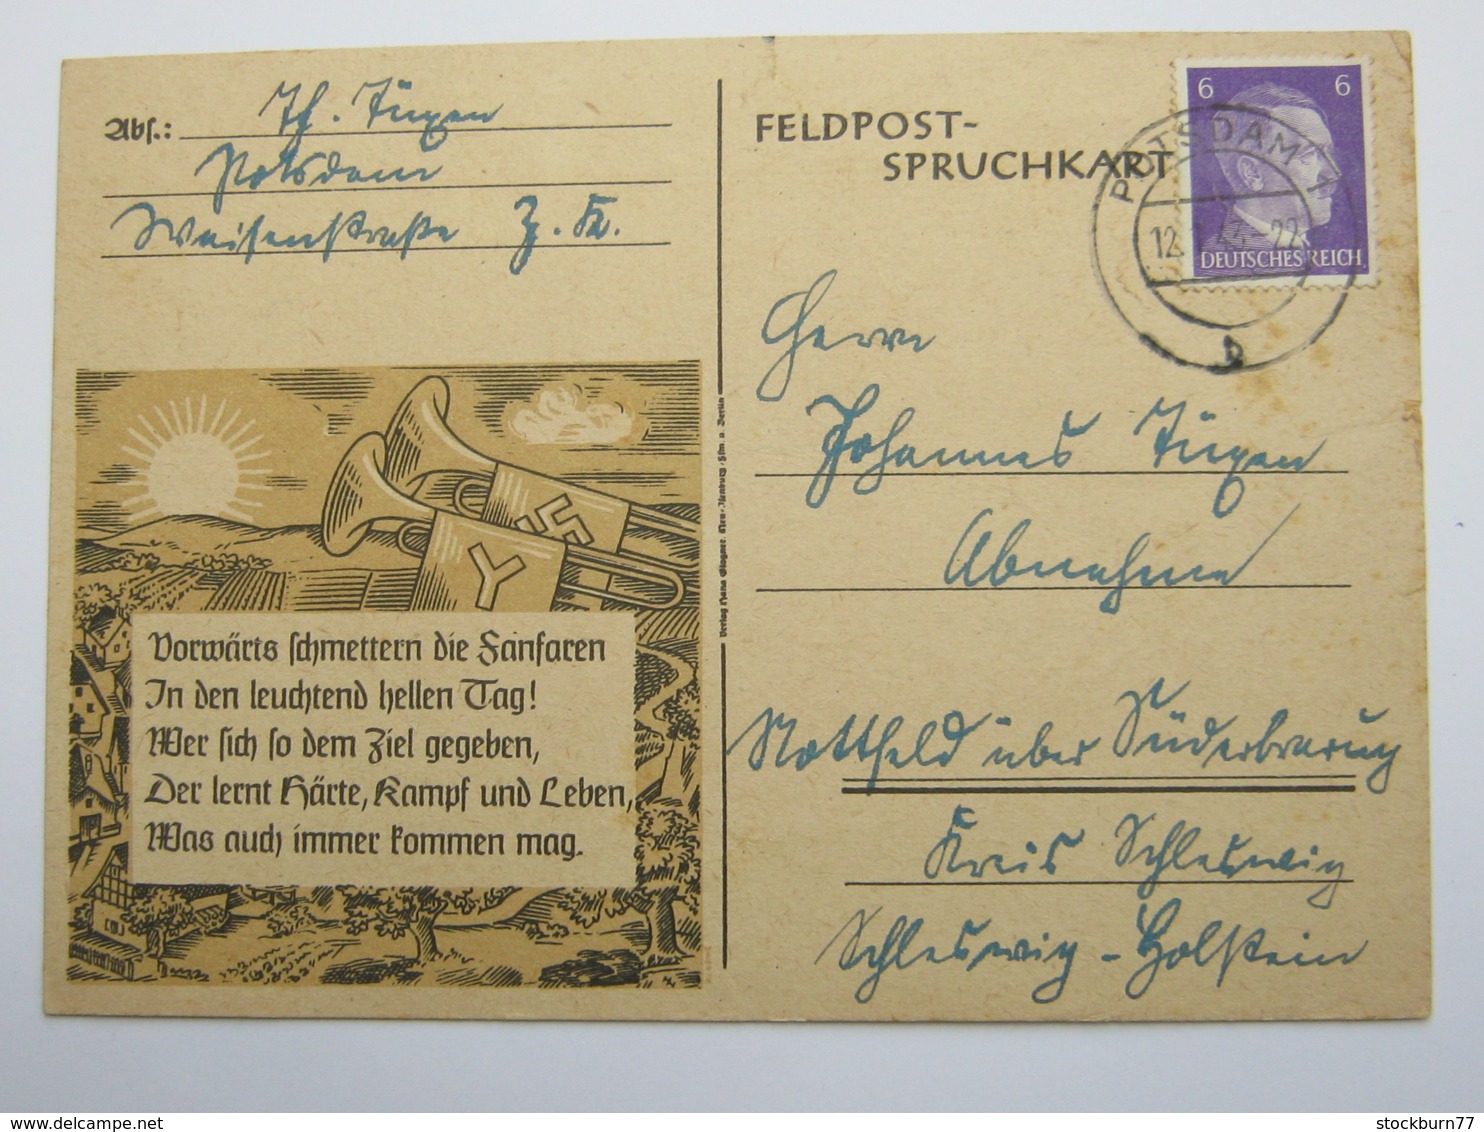 Abs.: Th. Tüxen
Potsdam
Waisenstraße Z. K.
FELDPOST-
SPRUCHKART
6 6
DEUTSCHES REICH
POTSDAM 1
12. 43. 22
b
Herrn
Johannes Tüxen
Abnahme
Nottfeld über Süderbrarup
Kreis Schleswig
Schleswig-Holstein
Vorwärts schmettern die Fanfaren
In den leuchtend hellen Tag!
Wer sich so dem Ziel gegeben,
Der lernt Härte, Kampf und Leben,
Was auch immer kommen mag.
Verlag Hans Glogner, Neu-Isenburg-Ffm u. Berlin
stockburn77